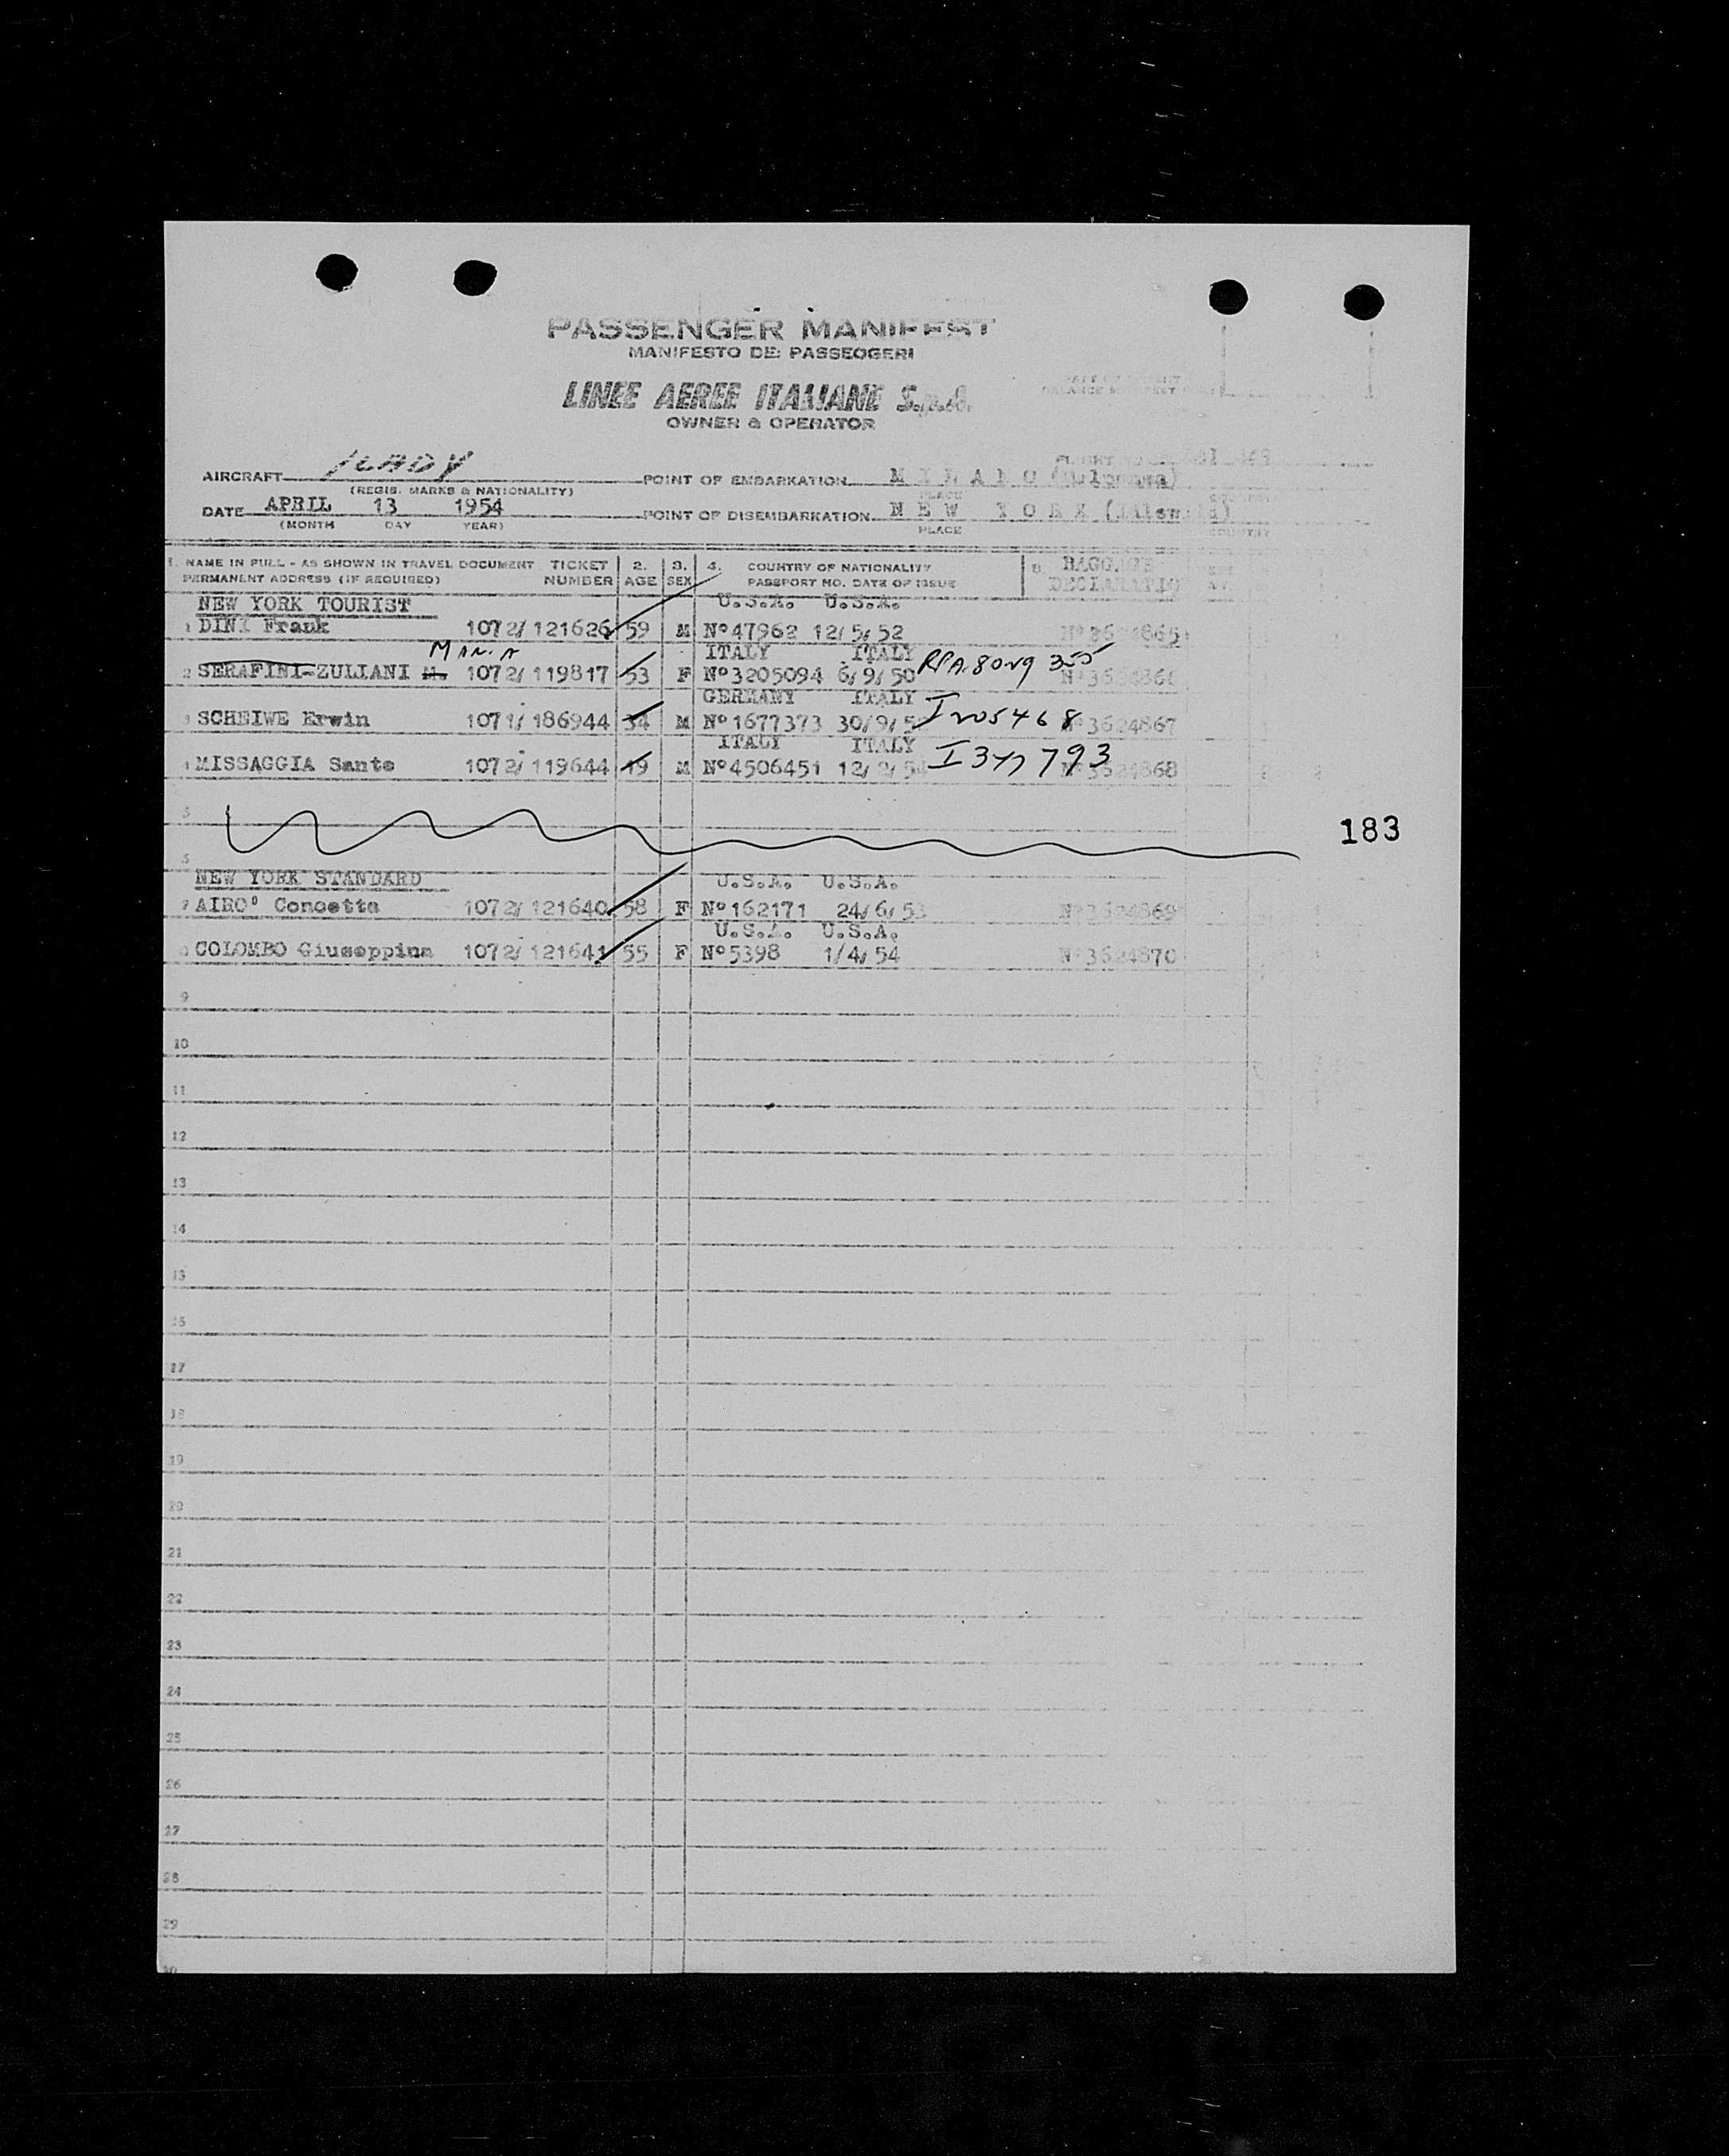 PASSENGER MANIFEST
MANIFESTO DEI PASSEGGERI
LINEE AEREE ITALIANE S.p.A.
OWNER & OPERATOR
AIRCRAFT ILADY POINT OF EMBARKATION MILANO
(REGIS. MARKS & NATIONALITY) PLACE COUNTRY
DATE APRIL 13 1954 POINT OF DISEMBARKATION NEW YORK
(MONTH DAY YEAR) PLACE COUNTRY
1. NAME IN FULL - AS SHOWN IN TRAVEL DOCUMENT TICKET 2. 3. 4. COUNTRY OF NATIONALITY BAGGAGE
PERMANENT ADDRESS (IF REQUIRED) NUMBER AGE SEX PASSPORT NO. DATE OF ISSUE DECLARATIO
NEW YORK TOURIST U.S.A. U.S.A.
1 DINI Frank 1072/ 121626 59 M Nº 47962 12/5/52
MARIA ITALY ITALY
2 SERAFINI-ZULIANI M. 1072/ 119817 53 F Nº 3205094 6/9/50
GERMANY ITALY
3 SCHEIWE Erwin 1071/ 186944 34 M Nº 1677373 30/9/ I205468 Nº 3624867
ITALY ITALY
4 MISSAGGIA Sante 1072/ 119644 19 M Nº 4506451 12/2/54 Nº 3624868
5
183
6
NEW YORK STANDARD U.S.A. U.S.A.
7 AIRO' Concetta 1072/ 121640 58 F Nº 162171 24/6/53 Nº 3624869
U.S.A. U.S.A.
8 COLOMBO Giuseppina 1072/ 121641 55 F Nº 5398 1/4/54 Nº 3624870
9
10
11
12
13
14
15
16
17
18
19
20
21
22
23
24
25
26
27
28
29
30